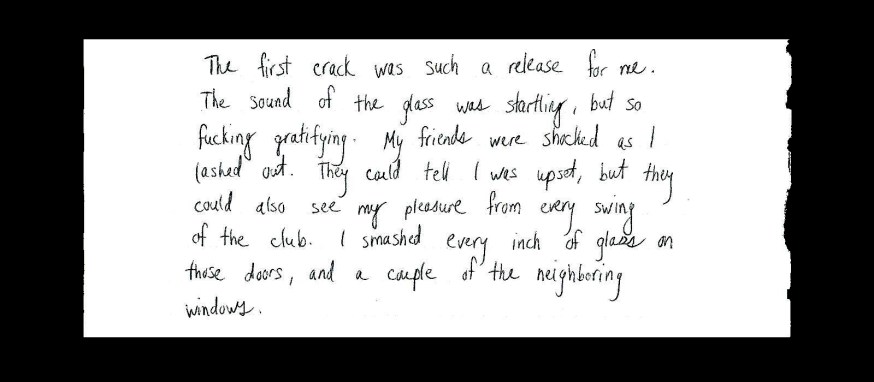 The first crack was such a release for me.
The sound of the glass was startling, but so
fucking gratifying. My friends were shocked as I
lashed out. They could tell I was upset, but they
could also see my pleasure from every swing
of the club. I smashed every inch of glass on
those doors, and a couple of the neighboring
windows.